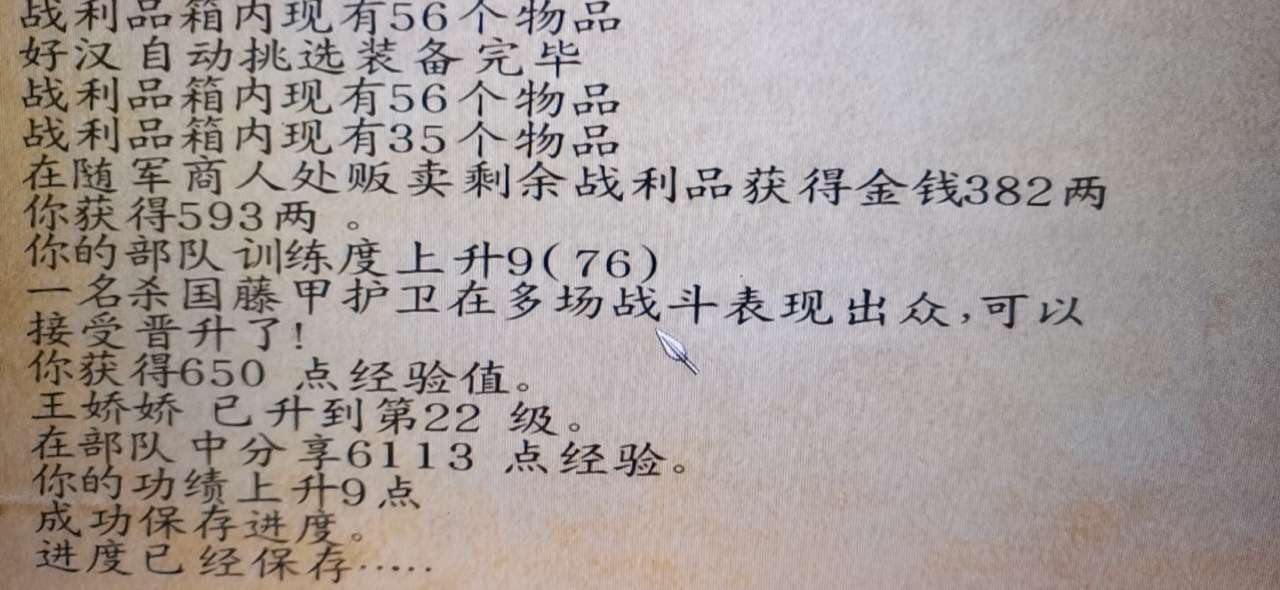 战利品箱内现有56个物品
好汉自动挑选装备完毕
战利品箱内现有56个物品
战利品箱内现有35个物品
在随军商人处贩卖剩余战利品获得金钱382两
你获得593两 。
你的部队训练度上升9(76)
一名杀国藤甲护卫在多场战斗表现出众,可以
接受晋升了!
你获得650 点经验值。
王娇娇 已升到第22 级。
在部队中分享6113 点经验。
你的功绩上升9点
成功保存进度。
进度已经保存·····